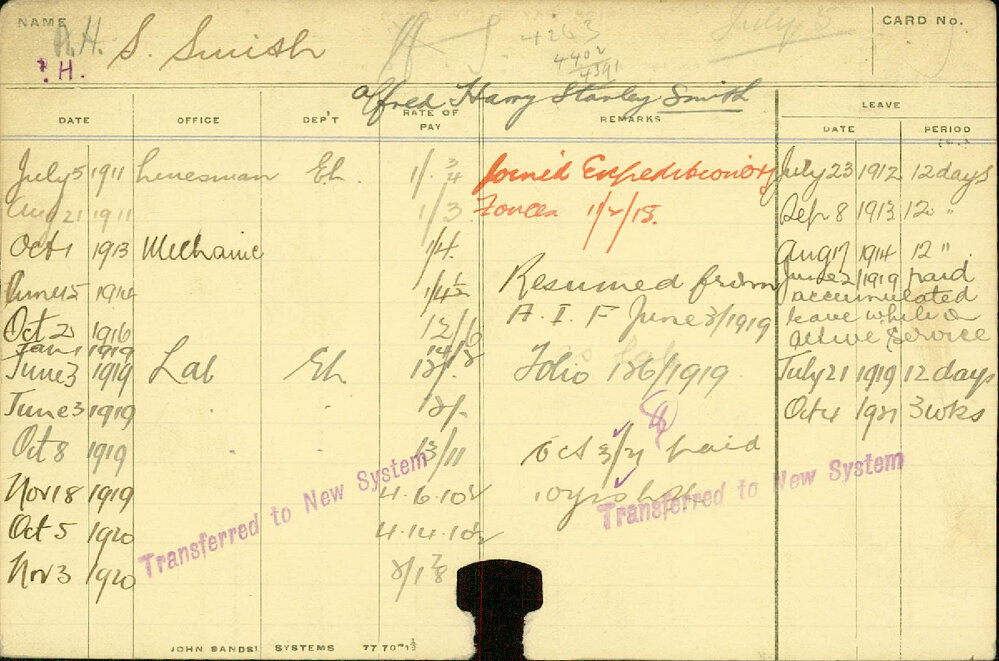 NAME A.H. S. Smith 4263 July 5 CARD No.
H. 4402
4391
Alfred Harry Stanley Smith
DATE OFFICE DEP'T RATE OF PAY REMARKS LEAVE
DATE PERIOD
July 5 1911 Linesman Eh. 1/. 3/4 Joined Expeditionary July 23 1912 12 days
Aug 21 1911 1/3 Forces 1/2/18. Sep 8 1913 12 "
Oct 1 1913 Mechanic 1/4. Aug 17 1914 12 ".
June 15 1914 1/4½ Resumed from June 2/1919 paid
accumulated
Oct 2 1916 12/6 A. I. F June 3/1919 leave while on
Jan 1 1919 active service
June 3 1919 Lab Eh 12/. Folio 126/1919 July 21 1919 12 days
June 3 1919 12/. Oct 4 1921 3 wks
Oct 8 1919 13/11 Oct 3/21 paid
Nov 18 1919 4.6.10½ 10 yrs
Oct 5 1920 4.14.10½
Nov 3 1920
Transferred to New System
Transferred to New System
JOHN SANDS' SYSTEMS 77 70